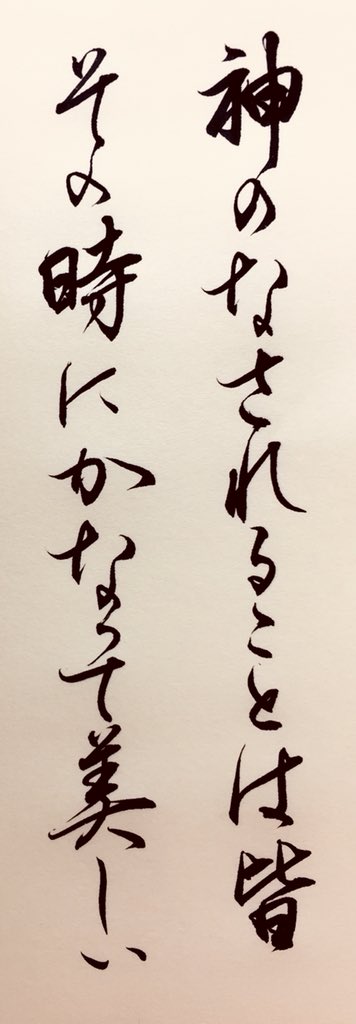 神のなされることは皆
その時にかなって美しい